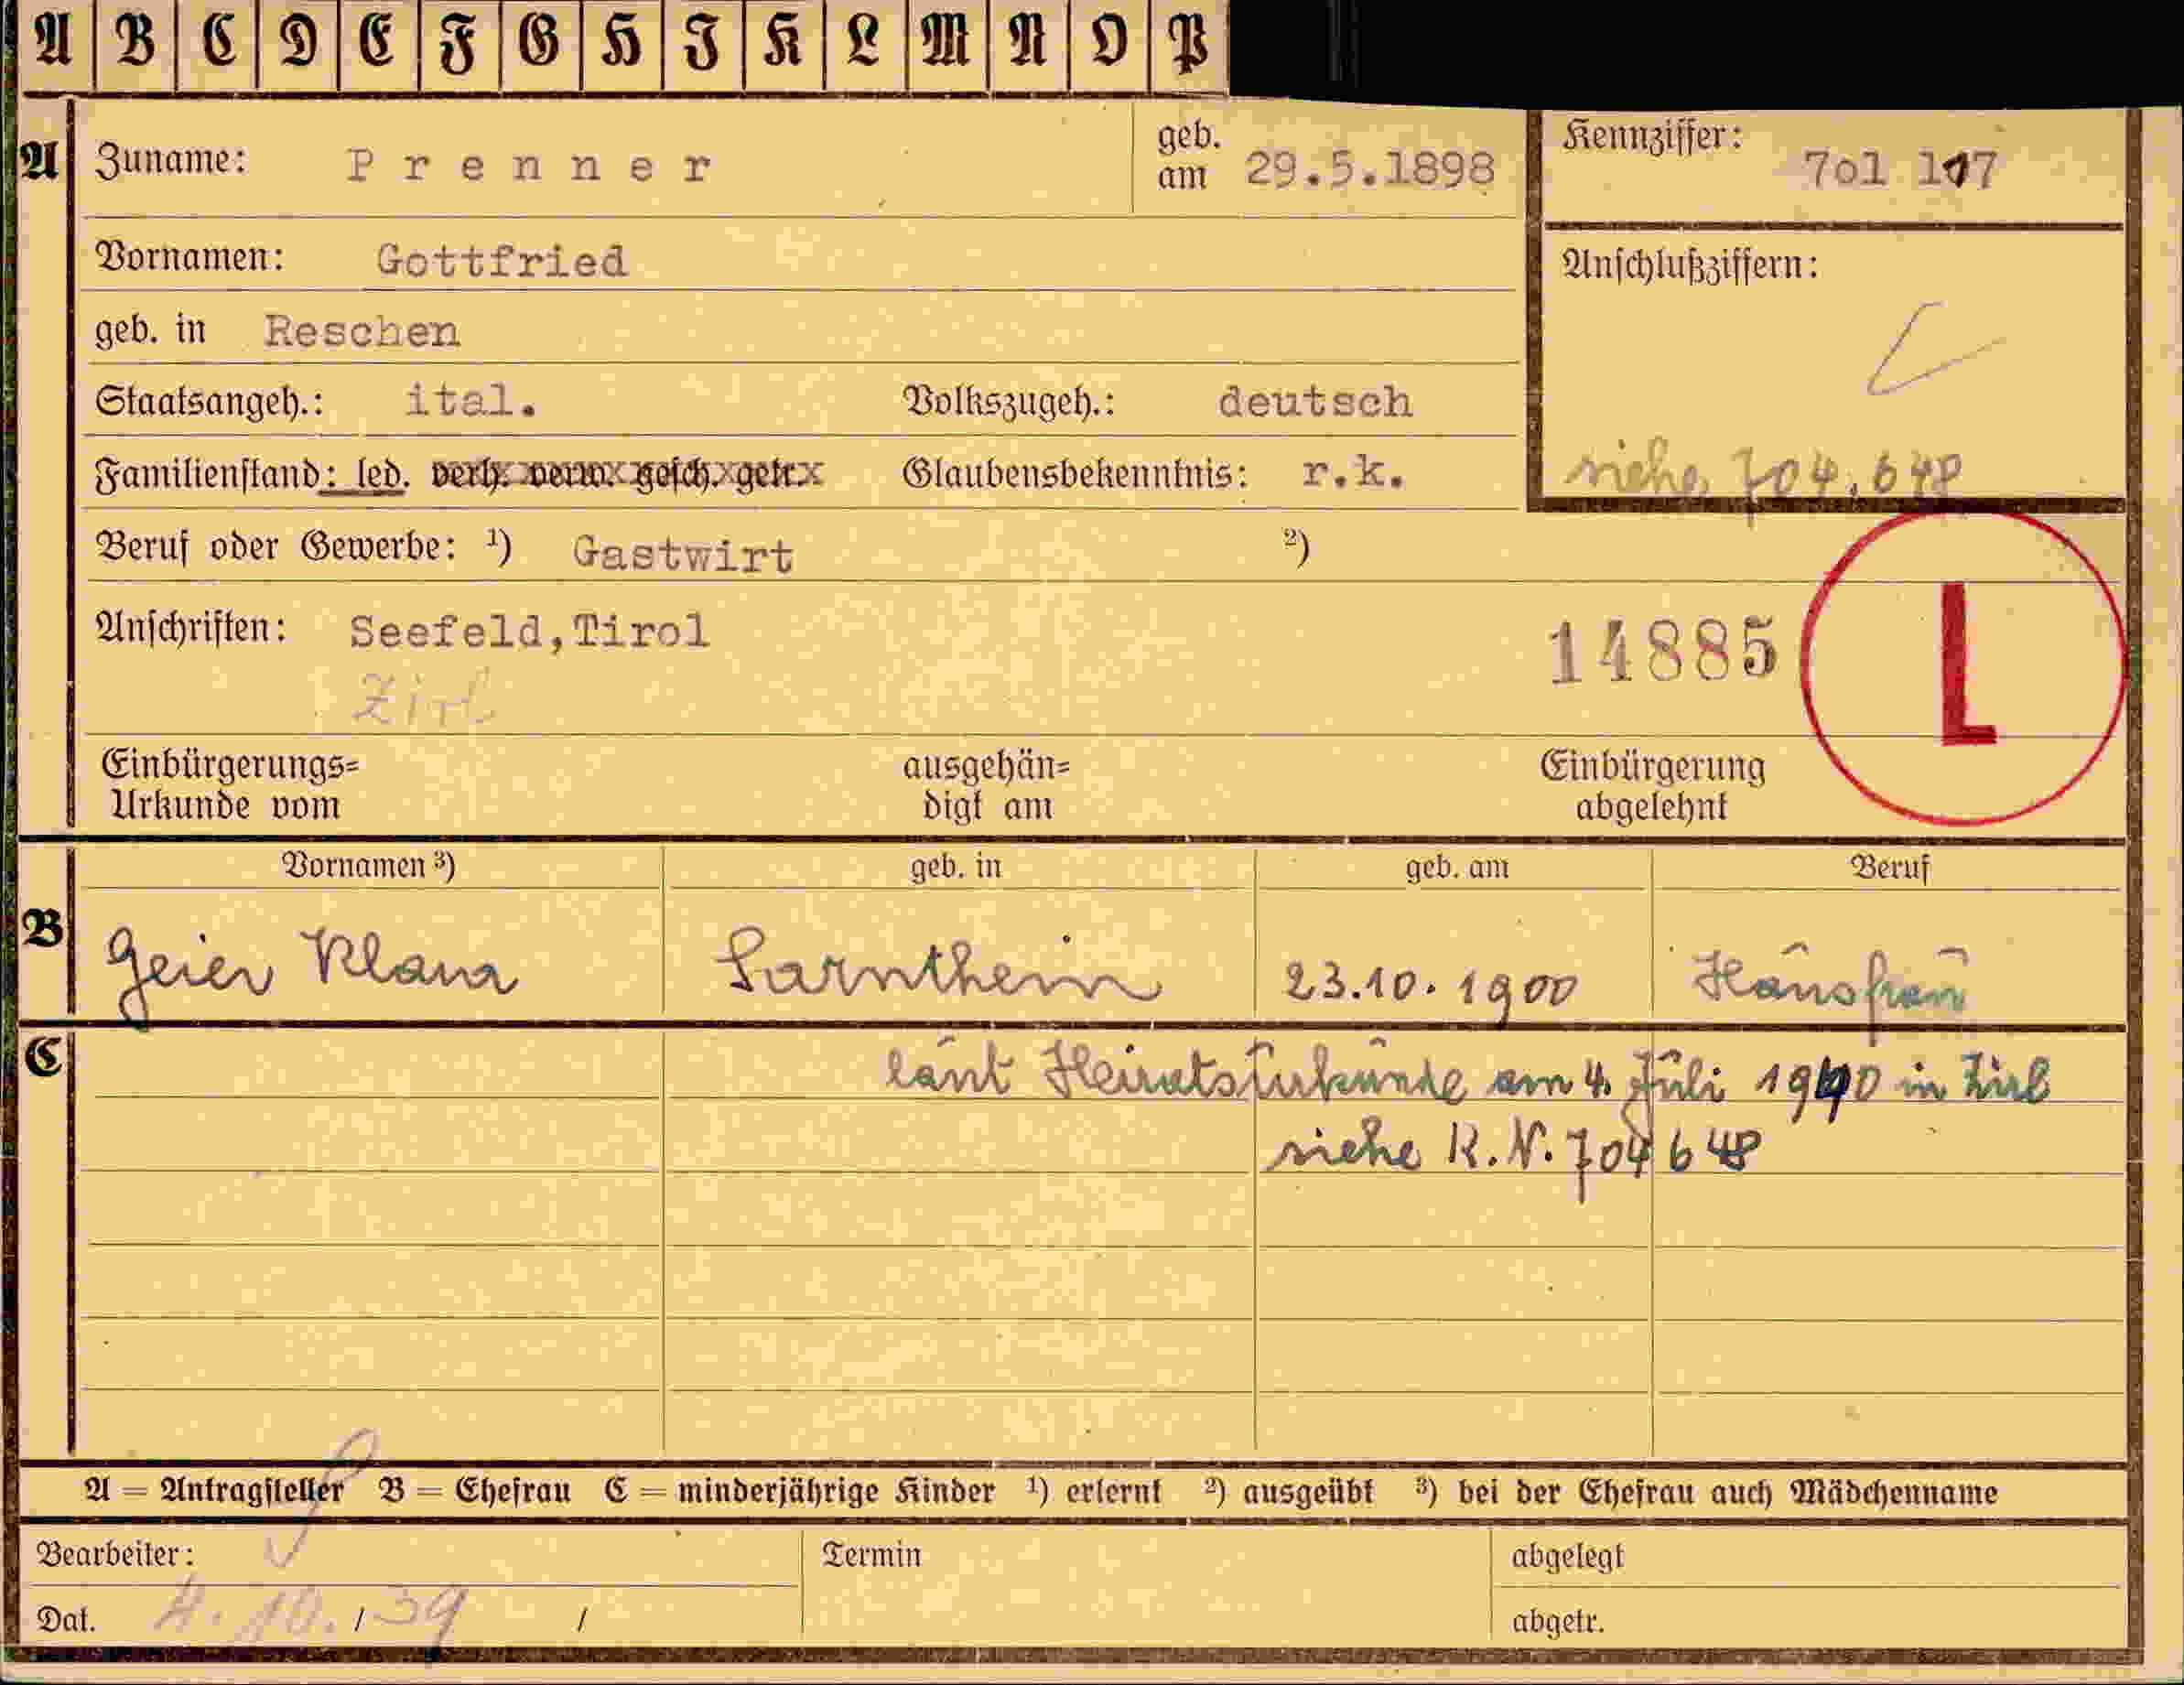 A B C D E F G H I K L M N O P
A Zuname: Prenner geb. am 29.5.1898 Kennziffer: 7o1 117
Vornamen: Gottfried Anschlußziffern:
geb. in Reschen
Staatsangeh.: ital. Volkszugeh.: deutsch
Familienstand: led. verh. verw. gesch. getr. Glaubensbekenntnis: r.k. siehe 704.648
Beruf oder Gewerbe: ¹) Gastwirt ²)
Anschriften: Seefeld,Tirol 14885 L
Zirl
Einbürgerungs= Urkunde vom ausgehän= digt am Einbürgerung abgelehnt
Vornamen ³) geb. in geb. am Beruf
B Geier Klara Sarnthein 23.10.1900 Hausfrau
C laut Heiratsurkunde am 4. Juli 1940 in Zirl
siehe K.N. 704648
A = Antragsteller B = Ehefrau C = minderjährige Kinder ¹) erlernt ²) ausgeübt ³) bei der Ehefrau auch Mädchenname
Bearbeiter: Termin abgelegt
Dat. 4.10./39 / abgetr.